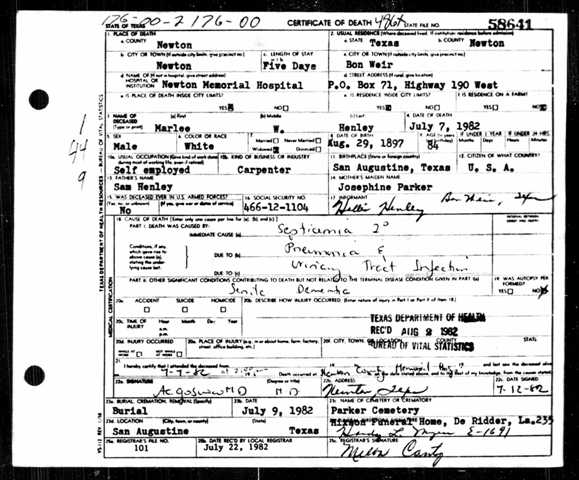 176-00-2176-00
STATE OF TEXAS CERTIFICATE OF DEATH STATE FILE NO. 58641
1. PLACE OF DEATH 2. USUAL RESIDENCE (Where deceased lived. If institution: residence before admission)
a. COUNTY a. STATE b. COUNTY
Newton Texas Newton
b. CITY OR TOWN (If outside city limits, give precinct no.) c. LENGTH OF STAY c. CITY OR TOWN (If outside city limits, give precinct no.)
Newton Five Days Bon Weir
d. NAME OF (If not in hospital, give street address) d. STREET ADDRESS (If rural, give location)
HOSPITAL OR INSTITUTION Newton Memorial Hospital P.O. Box 71, Highway 190 West
e. IS PLACE OF DEATH INSIDE CITY LIMITS? e. IS RESIDENCE INSIDE CITY LIMITS? f. IS RESIDENCE ON A FARM?
YES NO YES NO YES NO
3. NAME OF DECEASED (a) First (c) Last 4. DATE OF DEATH
(Type or print) Marlee W. Henley July 7, 1982
5. SEX 6. COLOR OR RACE 7. Married Never Married 8. DATE OF BIRTH IF UNDER 1 YEAR IF UNDER 24 HRS
Male White Widowed Divorced Aug. 29, 1897 84
10a. USUAL OCCUPATION 10b. KIND OF BUSINESS OR INDUSTRY 11. BIRTHPLACE (State or foreign country) 12. CITIZEN OF WHAT COUNTRY?
Self employed Carpenter San Augustine, Texas U. S. A.
13. FATHER'S NAME 14. MOTHER'S MAIDEN NAME
Sam Henley Josephine Parker
15. WAS DECEASED EVER IN U.S. ARMED FORCES? 16. SOCIAL SECURITY NO. 17. INFORMANT
No 466-12-1104 Henley
18. CAUSE OF DEATH (Enter only one cause per line for (a), (b), and (c).)
PART I. DEATH WAS CAUSED BY:
IMMEDIATE CAUSE (a) Septicemia 2°
DUE TO (b) Pneumonia &
DUE TO (c) Urinary Tract Infection
PART II. OTHER SIGNIFICANT CONDITIONS CONTRIBUTING TO DEATH BUT NOT RELATED TO THE TERMINAL DISEASE CONDITION GIVEN IN PART I(a) 19. WAS AUTOPSY PERFORMED?
Senile Dementia YES NO
20a. ACCIDENT SUICIDE HOMICIDE 20b. DESCRIBE HOW INJURY OCCURRED.
TEXAS DEPARTMENT OF HEALTH
20c. TIME OF INJURY Hour Month Day Year REC'D AUG 2 1982
BUREAU OF VITAL STATISTICS
22a. SIGNATURE (Degree or title) 22b. ADDRESS 22c. DATE SIGNED
MD Newton Texas 7-12-82
23a. BURIAL, CREMATION, REMOVAL (Specify) 23b. DATE 23c. NAME OF CEMETERY OR CREMATORY
Burial July 9, 1982 Parker Cemetery
23d. LOCATION (City, town, or county) (State)
San Augustine Texas Hixson Funeral Home, De Ridder, La. 235
E-1691
25a. REGISTRAR'S FILE NO. 25b. DATE REC'D BY LOCAL REGISTRAR 25c. REGISTRAR'S SIGNATURE
101 July 22, 1982